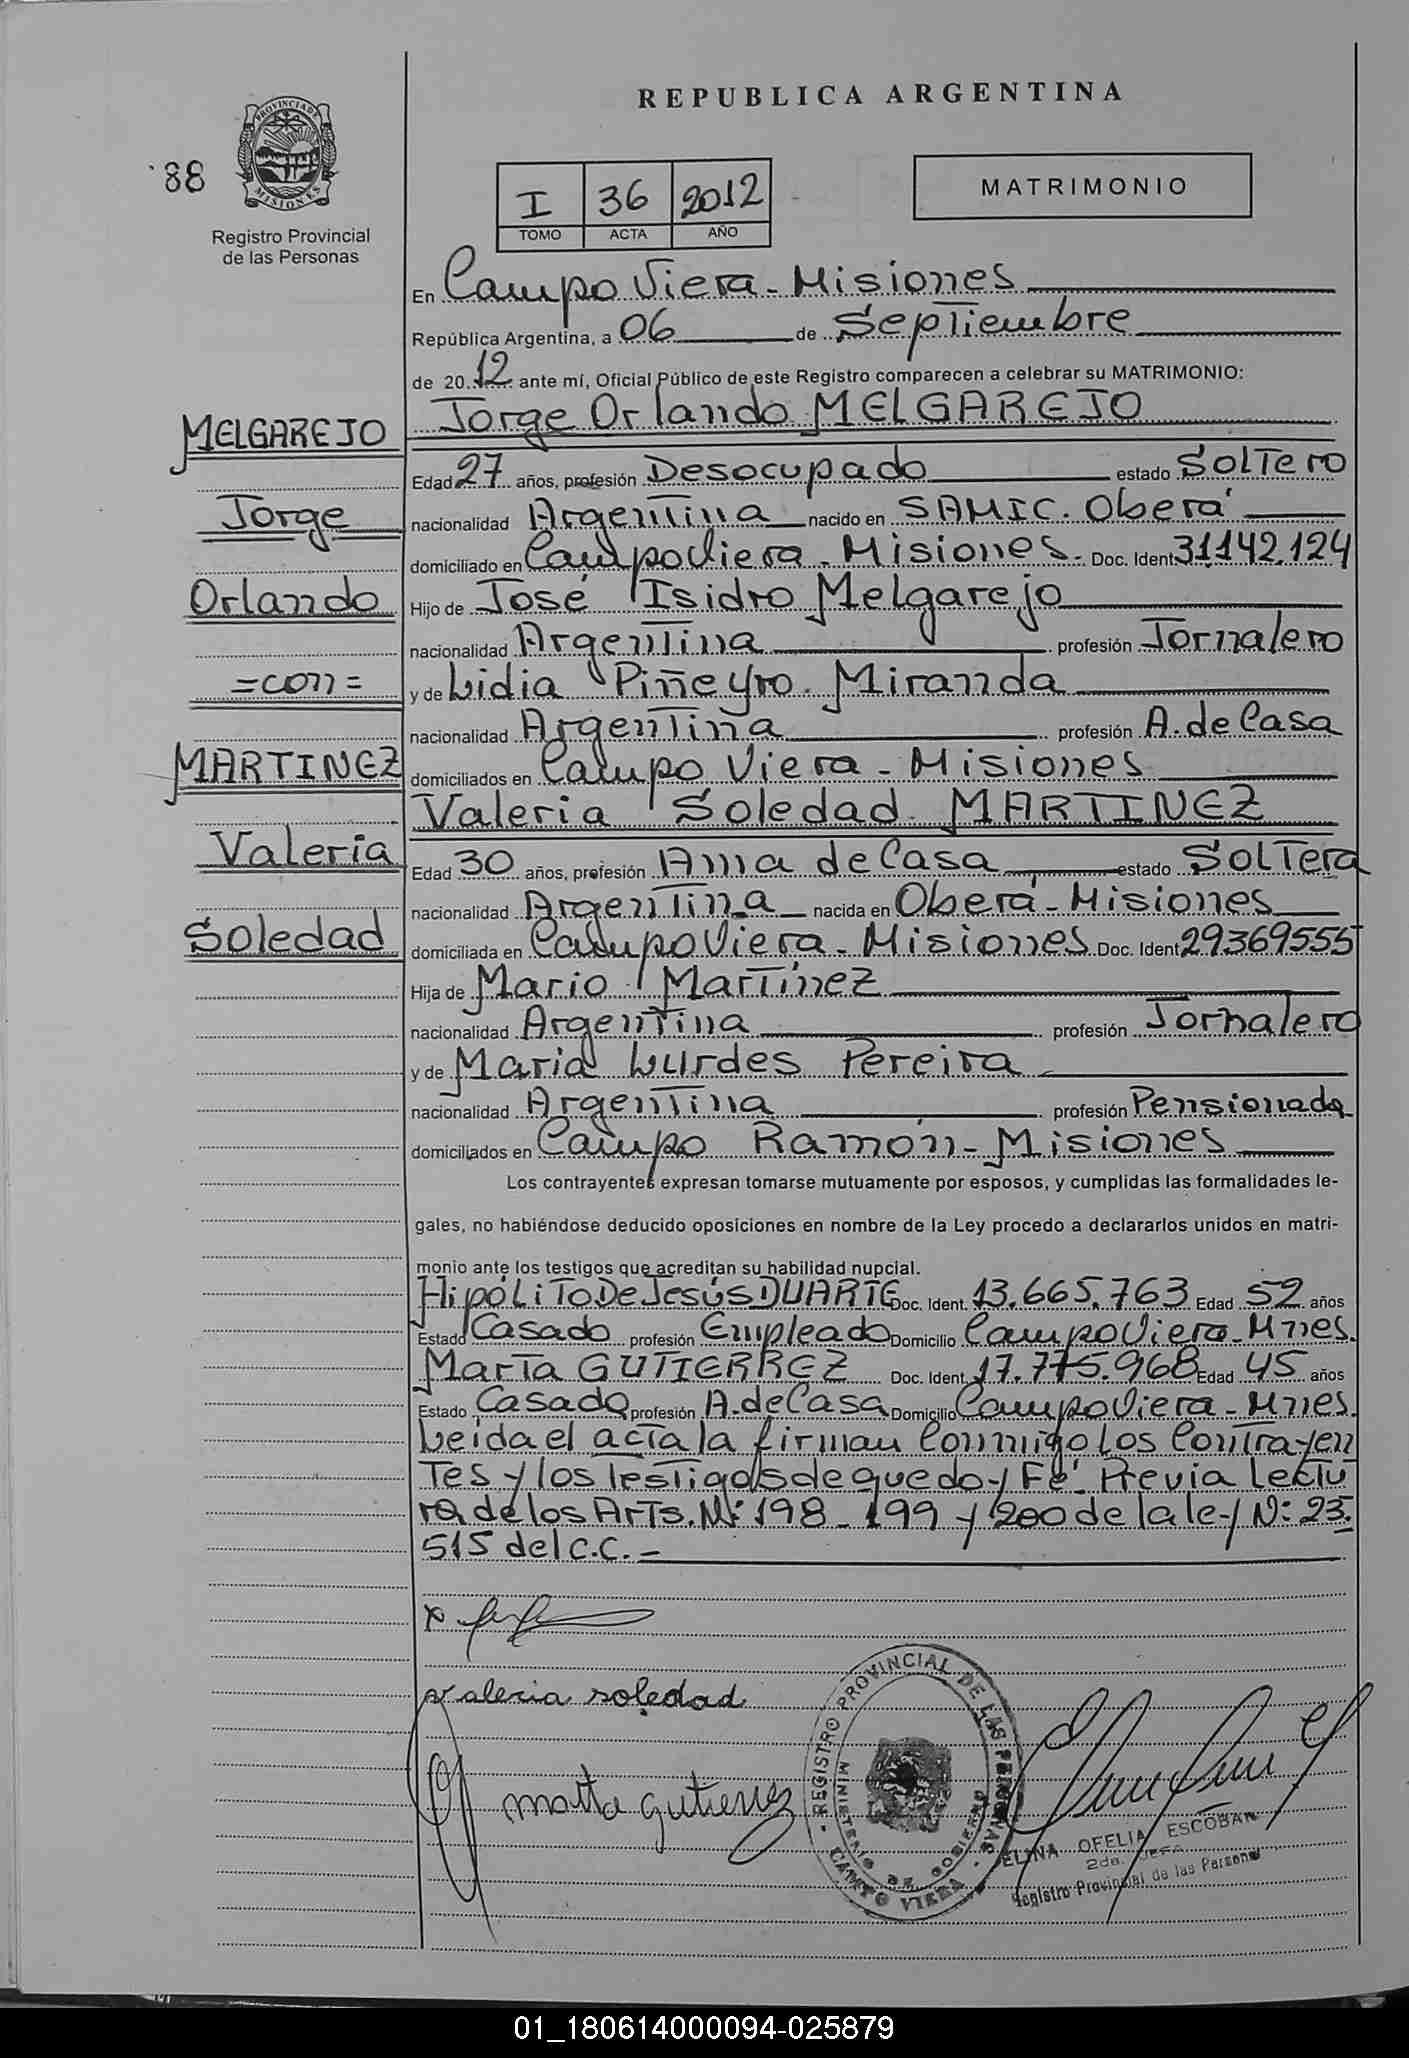 REPUBLICA ARGENTINA
PROVINCIA DE
MISIONES
88
Registro Provincial
de las Personas
I 36 2012
TOMO ACTA AÑO
MATRIMONIO
En Campo Viera - Misiones
República Argentina, a 06 de Septiembre
de 2012 ante mí, Oficial Público de este Registro comparecen a celebrar su MATRIMONIO:
Jorge Orlando MELGAREJO
MELGAREJO
Jorge
Orlando
=con=
MARTINEZ
Valeria
Soledad
Edad 27 años, profesión Desocupado estado Soltero
nacionalidad Argentina nacido en SAMIC. Oberá
domiciliado en Campo Viera - Misiones. Doc. Ident 31.142.124
Hijo de José Isidro Melgarejo
nacionalidad Argentina profesión Jornalero
y de Lidia Piñeyro Miranda
nacionalidad Argentina profesión A. de Casa
domiciliados en Campo Viera - Misiones
Valeria Soledad MARTINEZ
Edad 30 años, profesión Ama de Casa estado Soltera
nacionalidad Argentina nacida en Oberá - Misiones
domiciliada en Campo Viera - Misiones Doc. Ident 29369555
Hija de Mario Martínez
nacionalidad Argentina profesión Jornalero
y de Maria Lurdes Pereira
nacionalidad Argentina profesión Pensionada
domiciliados en Campo Ramón - Misiones
Los contrayentes expresan tomarse mutuamente por esposos, y cumplidas las formalidades le-
gales, no habiéndose deducido oposiciones en nombre de la Ley procedo a declararlos unidos en matri-
monio ante los testigos que acreditan su habilidad nupcial.
Hipólito De Jesús DUARTE Doc. Ident. 13.665.763 Edad 52 años
Estado Casado profesión Empleado Domicilio Campo Viera - Mnes.
Marta GUTIERREZ Doc. Ident. 17.775.968 Edad 45 años
Estado Casada profesión A. de Casa Domicilio Campo Viera - Mnes.
Leida el acta la firman Conmigo Los Contrayen
Tes y los Testigos de que doy Fé. Previa Lectu
ra de los Arts. N: 198 - 199 y 200 de la ley N: 23.
515 del C.C. -
x
Valeria soledad
marta gutierrez
REGISTRO PROVINCIAL DE LAS PERSONAS
MINISTERIO DE GOBIERNO
CAMPO VIERA
ELINA OFELIA ESCOBAR
2da. JEFA
Registro Provincial de las Personas
01_180614000094-025879